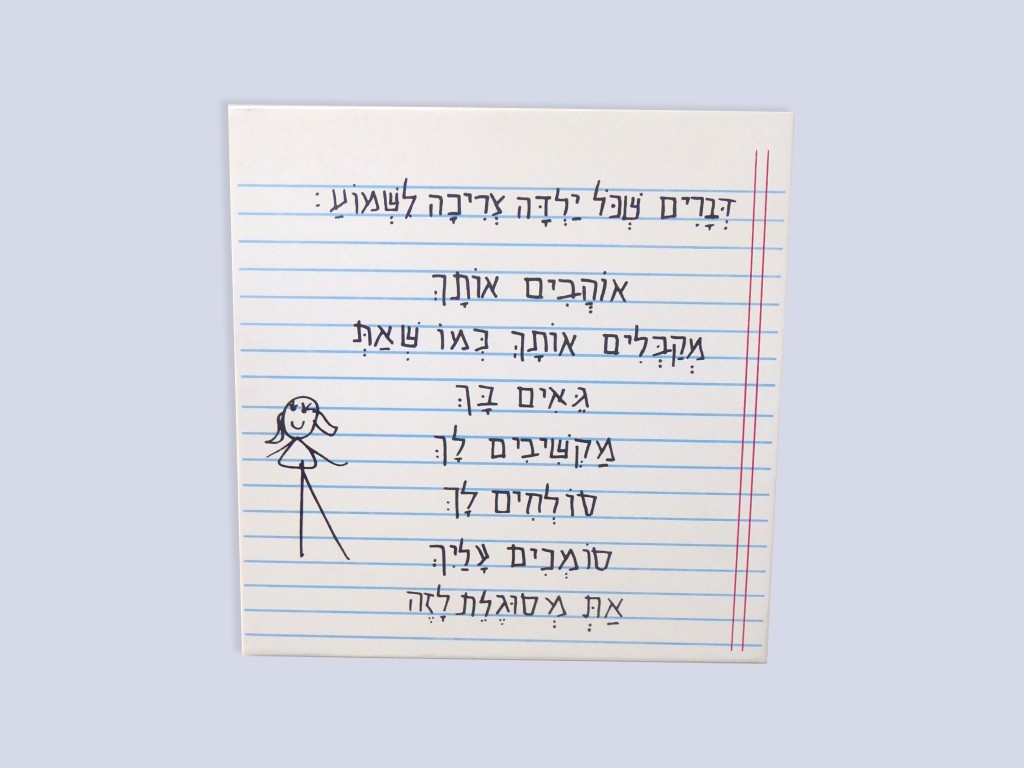 דְּבָרִים שֶׁכֹּל יַלְדָּה צְרִיכָה לִשְׁמוֹעַ:
אוֹהֲבִים אוֹתָךְ
מְקַבְּלִים אוֹתָךְ כְּמוֹ שֶׁאַתְּ
גֵּאִים בָּךְ
מַקְשִׁיבִים לָךְ
סוֹלְחִים לָךְ
סוֹמְכִים עָלַיִךְ
אַתְּ מְסוּגֶלֶת לָזֶה